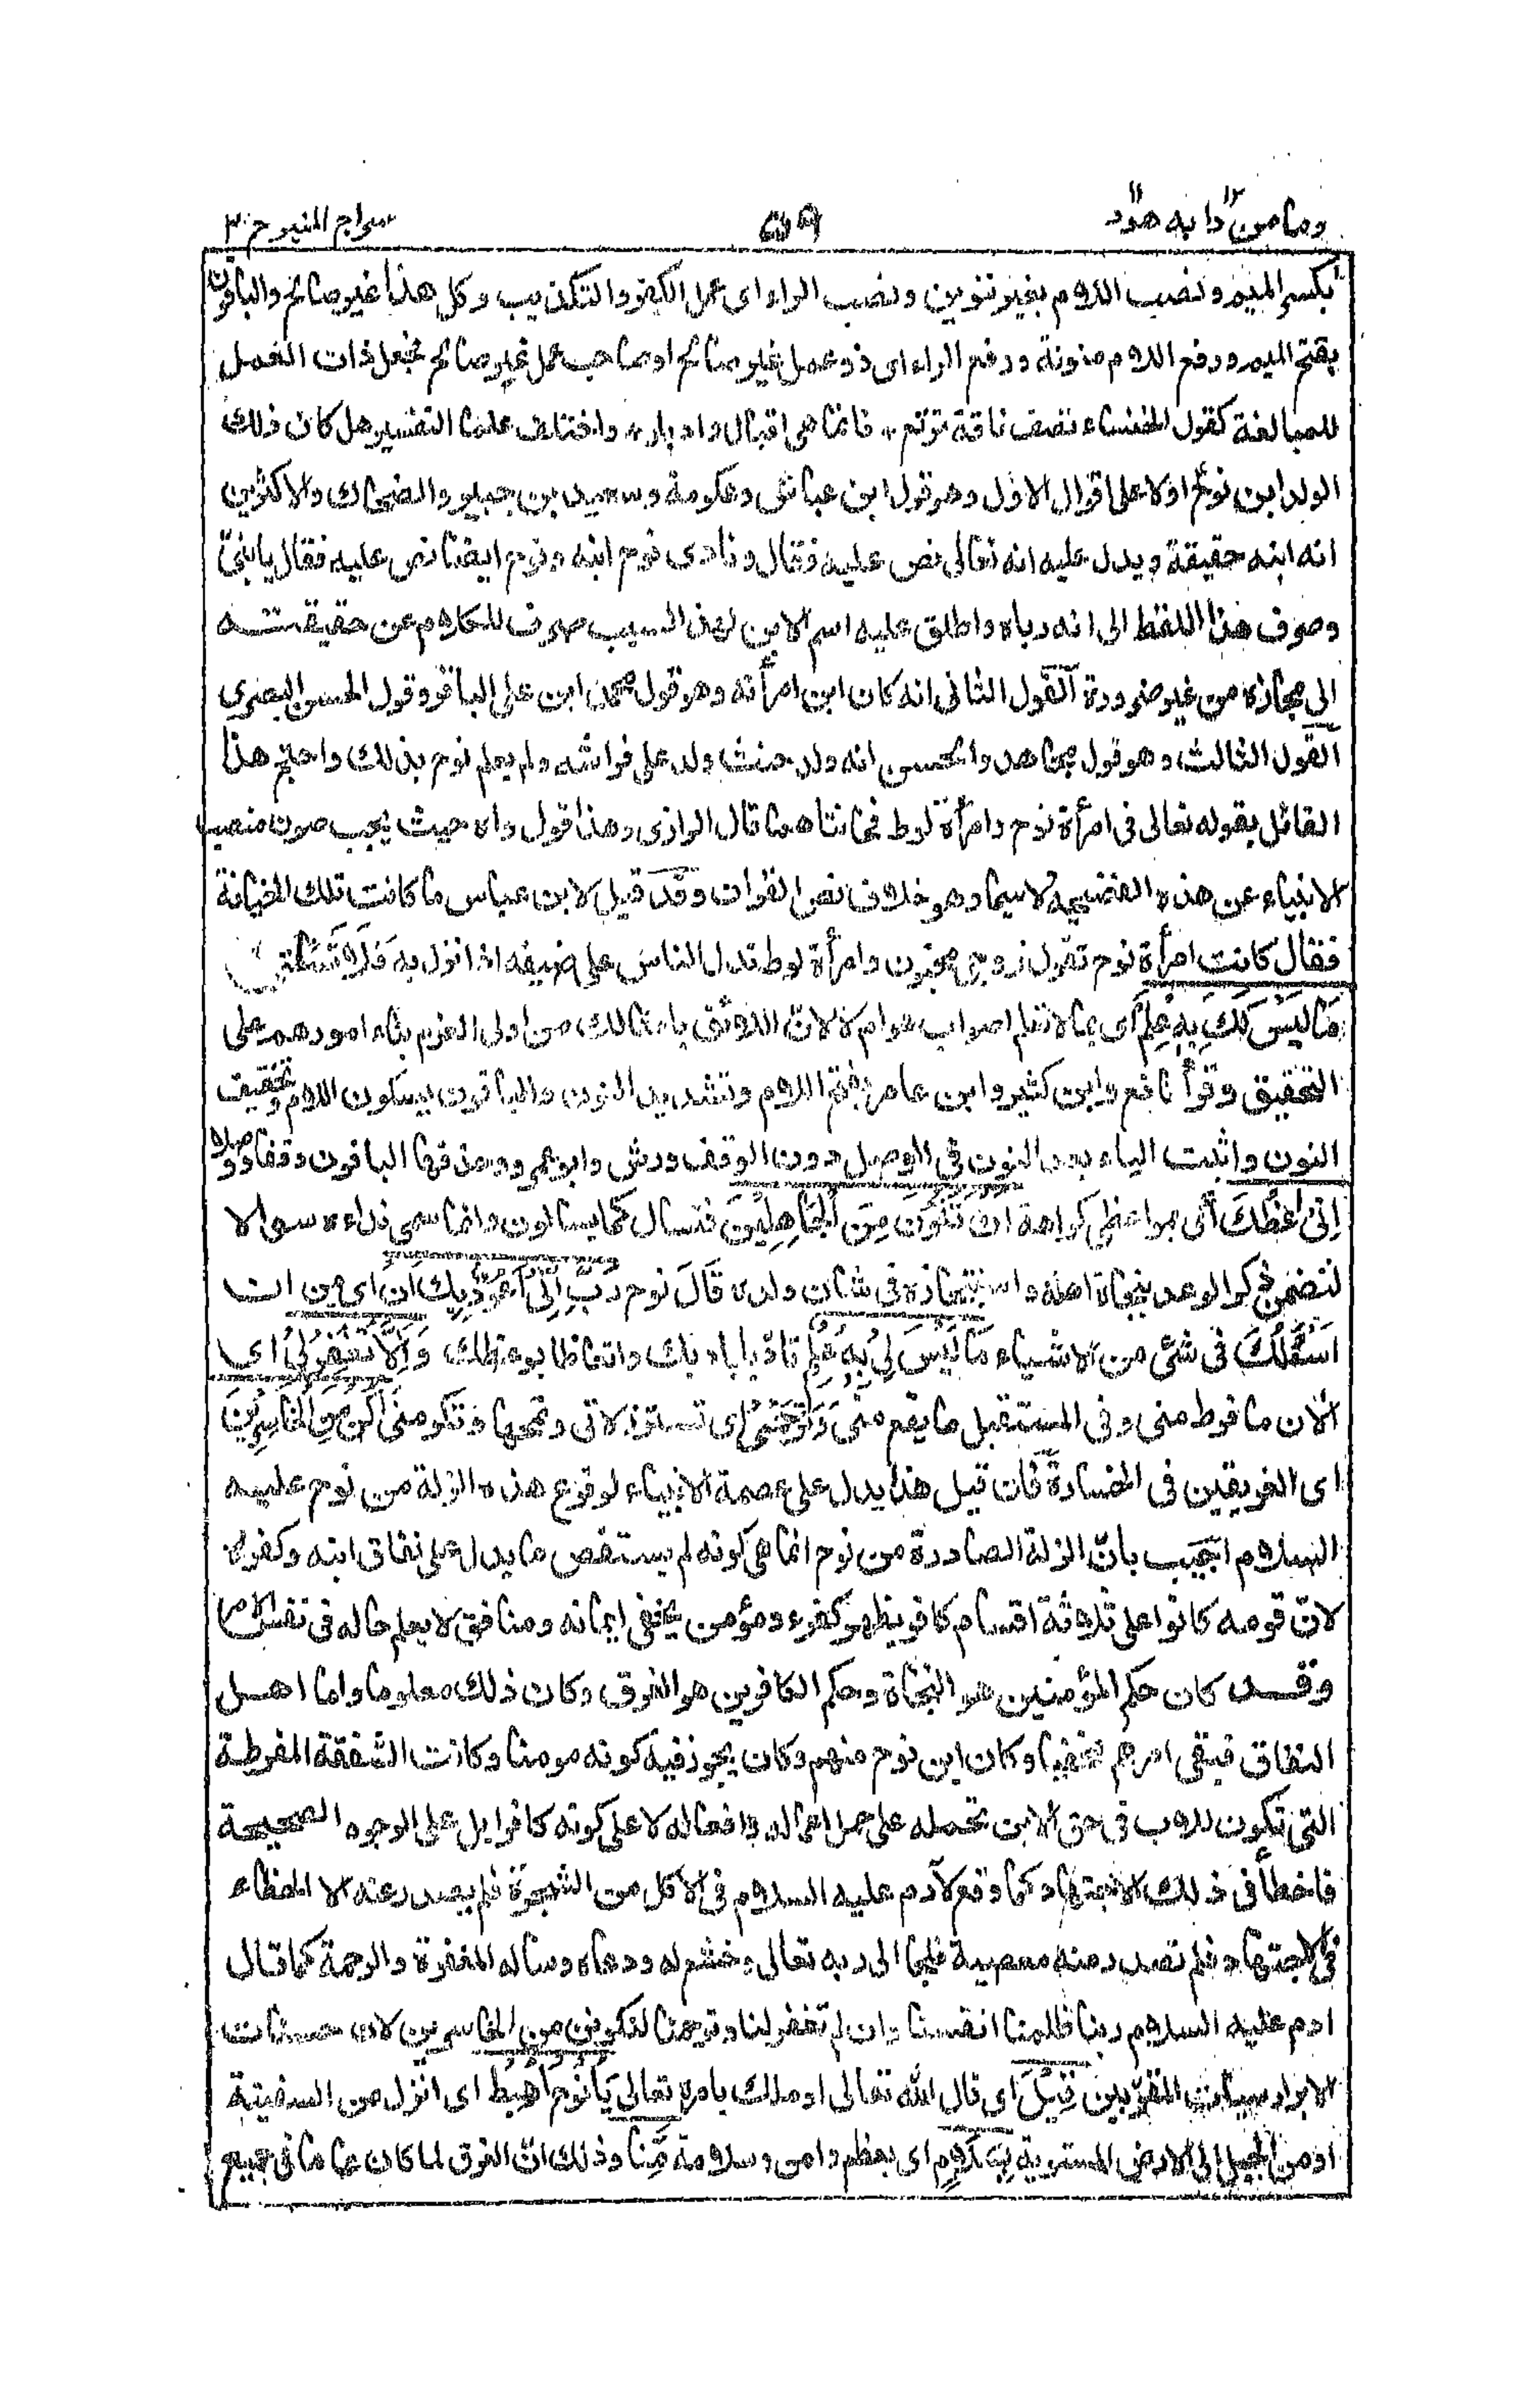 وما من دابه ١٢ هود ١١
٥٩
سراج المنير ج ٣
بكسر الميم ونصب اللام بغير تنوين ونصب الراء اى عمل الكفر والتكذيب وكل هذا غير صالح والباقون
بفتح الميم ورفع اللام منونة ورفع الراء اى ذو عمل غير صالح او صاحب عمل غير صالح فجعل ذات العمل
للمبالغة كقول الخنساء تصف ناقة ترتع، فانما هى اقبال وادبار، واختلف علماء التفسير هل كان ذلك
الولد ابن نوح اولا على اقوال الاول وهو قول ابن عباس وعكرمة وسعيد بن جبير والضحاك والاكثرين
انه ابنه حقيقة ويدل عليه انه تعالى نص عليه فقال ونادى نوح ابنه ونوح ايضا نص عليه فقال يا بنىّ
وصرف هذا اللفظ الى انه رباه واطلق عليه اسم الابن لهذا السبب صرف للكلام عن حقيقته
الى مجازه من غير ضرورة القول الثانى انه كان ابن امرأته وهو قول محمد ابن على الباقر وقول الحسن البصرى
القول الثالث وهو قول مجاهد والحسن انه ولد حنث ولد على فراشه ولم يعلم نوح بذلك واحتج هذا
القائل بقوله تعالى فى امرأة نوح وامرأة لوط فخانتاهما قال الرازى وهذا قول واه حيث يجب صون منصب
الانبياء عن هذه الفضيحة لاسيما وهو خلاف نص القران وقد قيل لابن عباس ما كانت تلك الخيانة
فقال كانت امرأة نوح تقول زوجى مجنون وامرأة لوط تدل الناس على ضيفه اذا نزل به فَلَا تَسْئَلْنِ
مَا لَيْسَ لَكَ بِهٖ عِلْمٌ اى بما لا تعلم اصواب هو ام لا لانّ اللائق بامثالك من اولى العزم بناء امورهم على
التحقيق وقرأ نافع وابن كثير وابن عامر بفتح اللام وتشديد النون والباقون بسكون اللام وتخفيف
النون واثبت الياء بعد النون فى الوصل دون الوقف ورش وابو عمرو وحذفها الباقون وقفا ووصلا
اِنِّىْٓ اَعِظُكَ اى بمواعظى كراهة اَنْ تَكُوْنَ مِنَ الْجَاهِلِيْنَ فتسال كما يسالون وانما سمى نداءه سوالا
لتضمن ذكر الوعد بنجاة اهله واستنجازه فى شان ولده قَالَ نوح رَبِّ اِنِّىْٓ اَعُوْذُ بِكَ ان اى من ان
اَسْئَلَكَ فى شئ من الاشياء مَا لَيْسَ لِىْ بِهٖ عِلْمٌ تادّبا بادبك واتعاظا بوعظك وَاِلَّا تَغْفِرْ لِىْ اى
الآن ما فرط منى وفى المستقبل ما يقع منّى وَتَرْحَمْنِىْ اى تستر زلاتى وتمحها وتكرمنى اَكُنْ مِنَ الْخَاسِرِيْنَ
اى الغريقين فى الخسارة فان قيل هذا يدل على عصمة الانبياء لوقوع هذه الزلة من نوح عليه
السلام اجيب بانّ الزلة الصادرة من نوح انما هى كونه لم يستقص ما يدل على نفاق ابنه وكفره
لانّ قومه كانوا على ثلاثة اقسام كافر يظهر كفره ومؤمن يخفى ايمانه ومنافق لا يعلم حاله فى نفس الامر
وقد كان حكم المؤمنين هو النجاة وحكم الكافرين هو الغرق وكان ذلك معلوما واما اهل
النفاق فبقى امرهم مخفيا وكان ابن نوح منهم وكان يجوز فيه كونه مومنا وكانت الشفقة المفرطة
التى تكون للاب فى حق الابن تحمله على حمل اعماله وافعاله لا على كونه كافرا بل على الوجوه الصحيحة
فاخطأ فى ذلك الاجتهاد كما وقع لآدم عليه السلام فى الاكل من الشجرة فلم يصدر عنه الا الخطاء
فى الاجتهاد فلم تصدر منه معصية فلجا الى ربه تعالى وخشع له ودعاه وساله المغفرة والرحمة كما قال
ادم عليه السلام ربنا ظلمنا انفسنا وان لم تغفر لنا وترحمنا لنكونن من الخاسرين لان حسنات
الابرار سيات المقرّبين قِيْلَ اى قال الله تعالى او ملك بامره تعالى يَا نُوْحُ اهْبِطْ اى انزل من السفينة
او من الجبل الى الارض المستوية بِسَلَامٍ اى بعظم وامن وسلامة مِّنَّا وذلك انّ الغرق لما كان عاما فى جميع